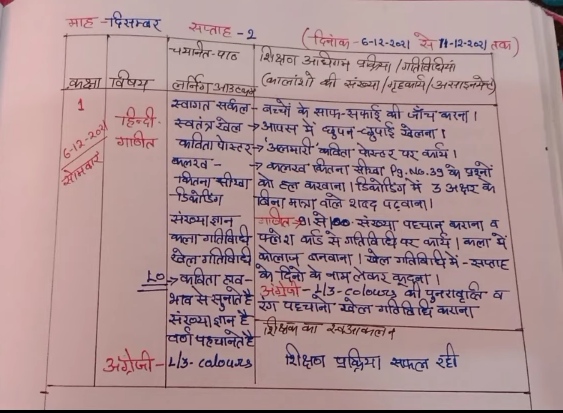 माह-दिसम्बर सप्ताह-2 (दिनांक-6-12-2021 से 11-12-2021 तक)
कक्षा विषय चयनित-पाठ शिक्षण अधिगम प्रक्रिया/गतिविधियां
लर्निंग आउटकम (कालांशो की संख्या/गृहकार्य/असाइनमेंट)
1 स्वागत सर्कल- बच्चों के साफ-सफाई की जाँच करना।
6-12-2021 हिन्दी- स्वतंत्र खेल → आपस में छुपन-छुपाई खेलना।
सोमवार गणित कविता पोस्टर → 'अलमारी' कविता पोस्टर पर कार्य।
कलरव- → कलरव 'कितना सीखा Pg.No.39 के प्रश्नों
कितना सीखा को हल करवाना। डिकोडिंग में 3 अक्षर के
डिकोडिंग बिना मात्रा वाले शब्द पढ़वाना।
संख्याज्ञान गणित → 91 से 100 संख्या पहचान कराना व
कला गतिविधि फ्लैश कार्ड से गतिविधि पर कार्य। कला में
खेल गतिविधि कोलाज बनवाना। खेल गतिविधि में - सप्ताह
LO → कविता हाव- के दिनों के नाम लेकर कूदना।
भाव से सुनाते है अंग्रेजी - L/3-colours की पुनरावृत्ति व
संख्याज्ञान है रंग पहचानो खेल गतिविधि कराना
वर्ण पहचानते है शिक्षक का स्वआकलन
अंग्रेजी- L/3- colours शिक्षण प्रक्रिया सफल रही